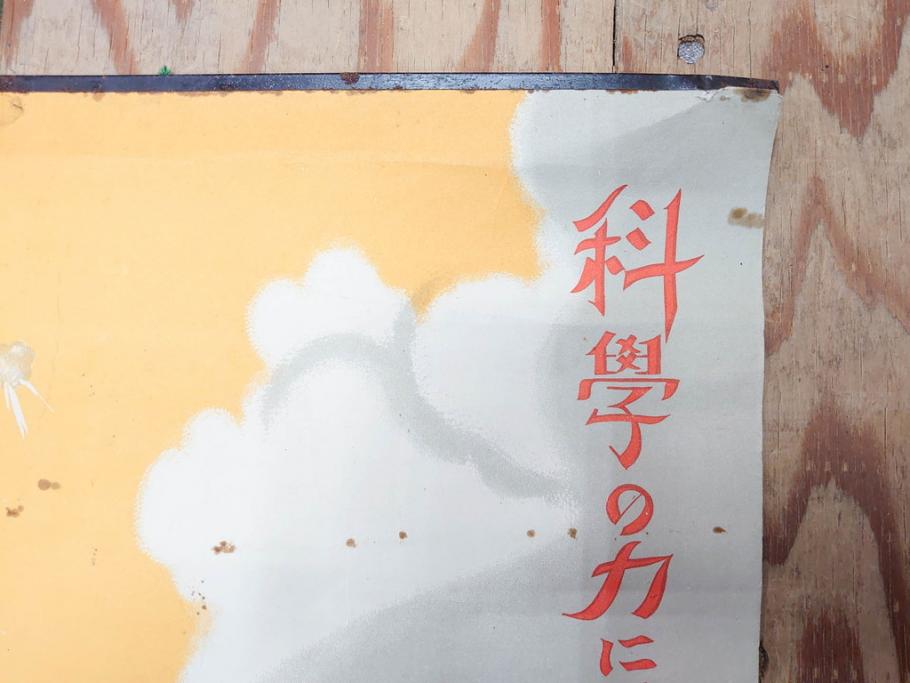 科學の力に